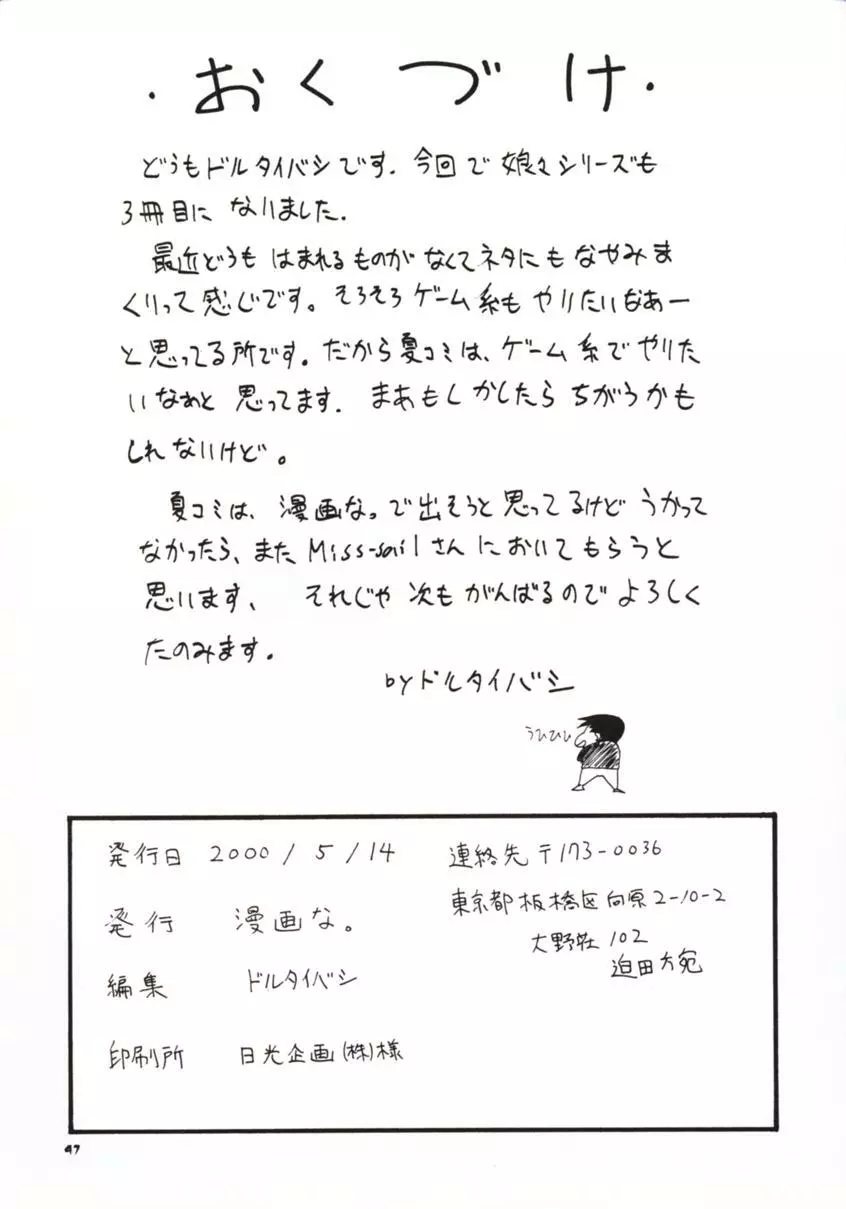 ・おくづけ・
どうもドルタイバシです. 今回で娘々シリーズも
3冊目になりました.
最近どうもはまれるものがなくてネタにもなやみま
くりって感じです。そろそろゲーム系もやりたいなあー
と思ってる所です。だから夏コミは、ゲーム系でやりた
いなぁと思ってます. まあもしかしたらちがうかも
しれないけど。
夏コミは、漫画な。で出そうと思ってるけどうかって
なかったら、またMiss-sailさんにおいてもらうと
思います、 それじゃ次もがんばるのでよろしく
たのみます。
byドルタイバシ
うひひひ
発行日 2000/5/14
発行 漫画な。
編集 ドルタイバシ
印刷所 日光企画(株)様
連絡先〒173-0036
東京都板橋区向原2-10-2
大野荘102
迫田方宛
47